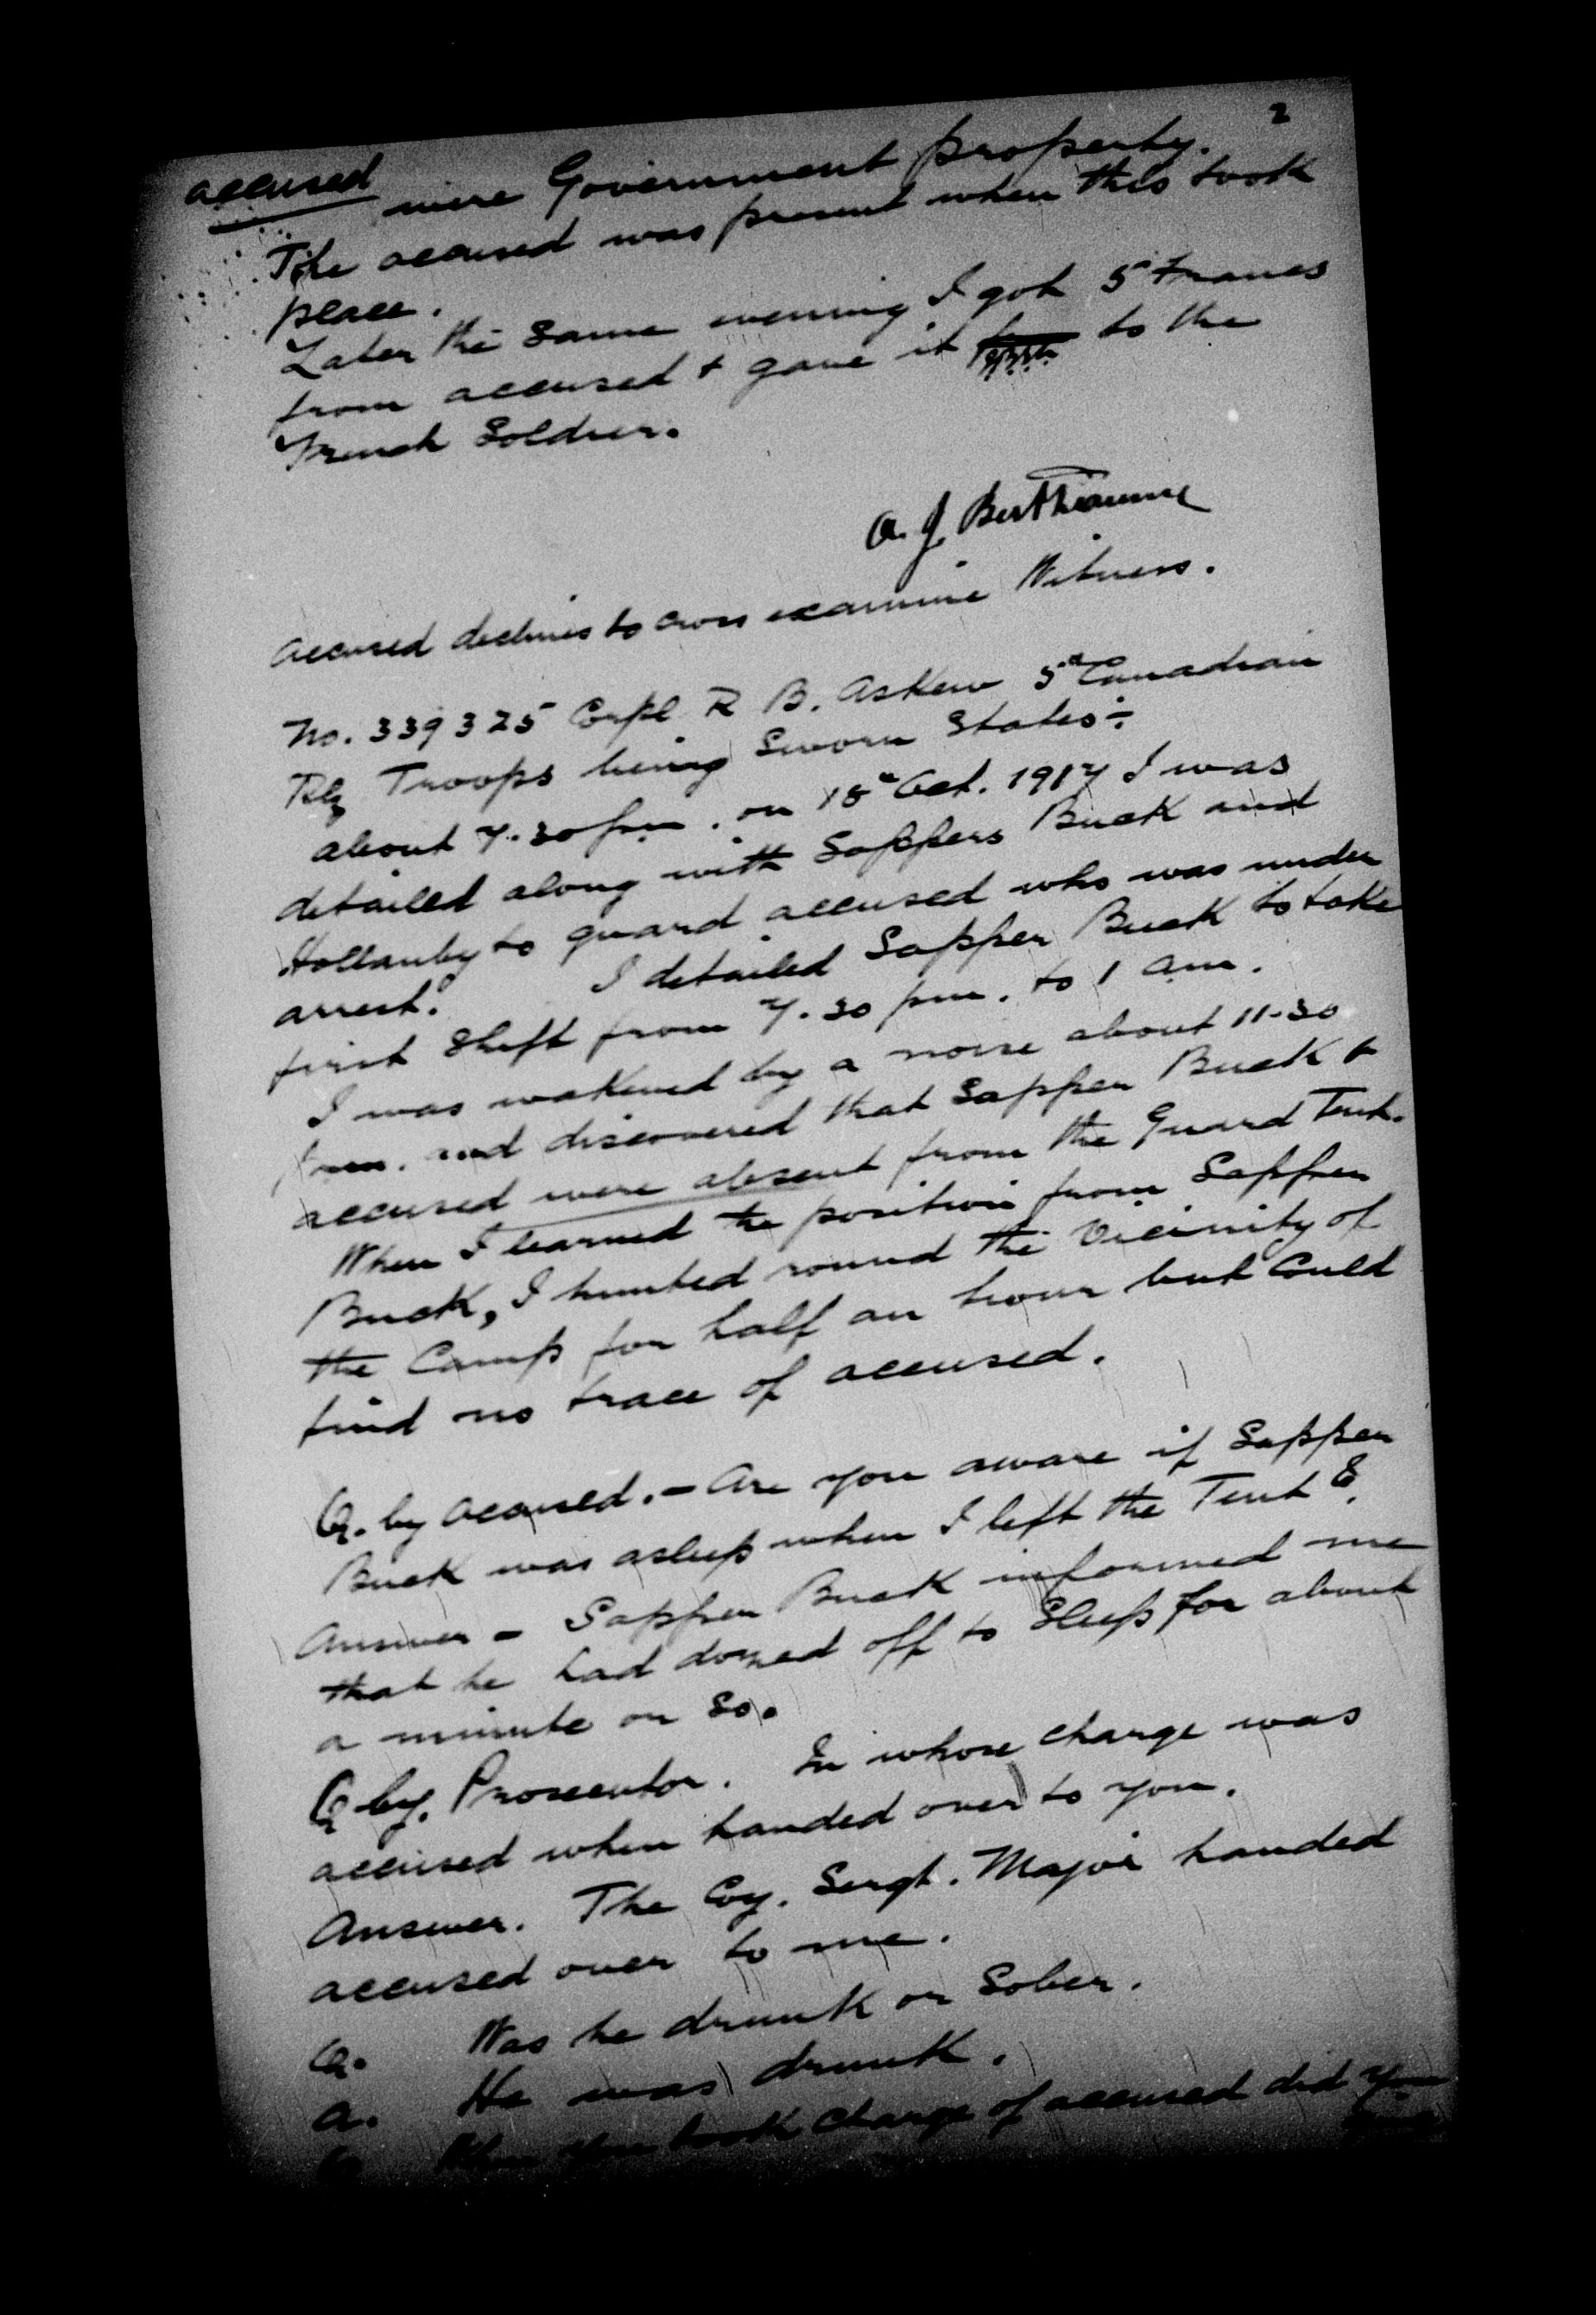 2
accused were Government property.
The accused was present when this took
place.
Later the same evening I got 5 Francs
from accused & gave it to the
French Soldier.
A. J. Berthiaume
Accused declines to cross examine Witness.
No. 339325 Corpl R B. Askew 5th Canadian
Rly Troops being Sworn States:-
about 7.30 pm. on 18th Oct. 1917 I was
detailed along with Sappers Buck and
Hollanby to guard accused who was under
arrest. I detailed Sapper Buck to take
first Shift from 7.30 pm. to 1 am.
I was wakened by a noise about 11-30
pm. and discovered that Sapper Buck &
accused were absent from the Guard Tent.
When I learned the position from Sapper
Buck, I hunted round the Vicinity of
the Camp for half an hour but Could
find no trace of accused.
Q. by accused. - Are you aware if Sapper
Buck was asleep when I left the Tent
Answer - Sapper Buck informed me
that he had dozed off to Sleep for about
a minute or So.
Q by. Prosecutor. In whose charge was
accused when handed over to you.
Answer. The Coy. Sergt. Major handed
accused over to me.
Q. Was he drunk or Sober.
A. He was drunk.
Q When you took charge of accused did you